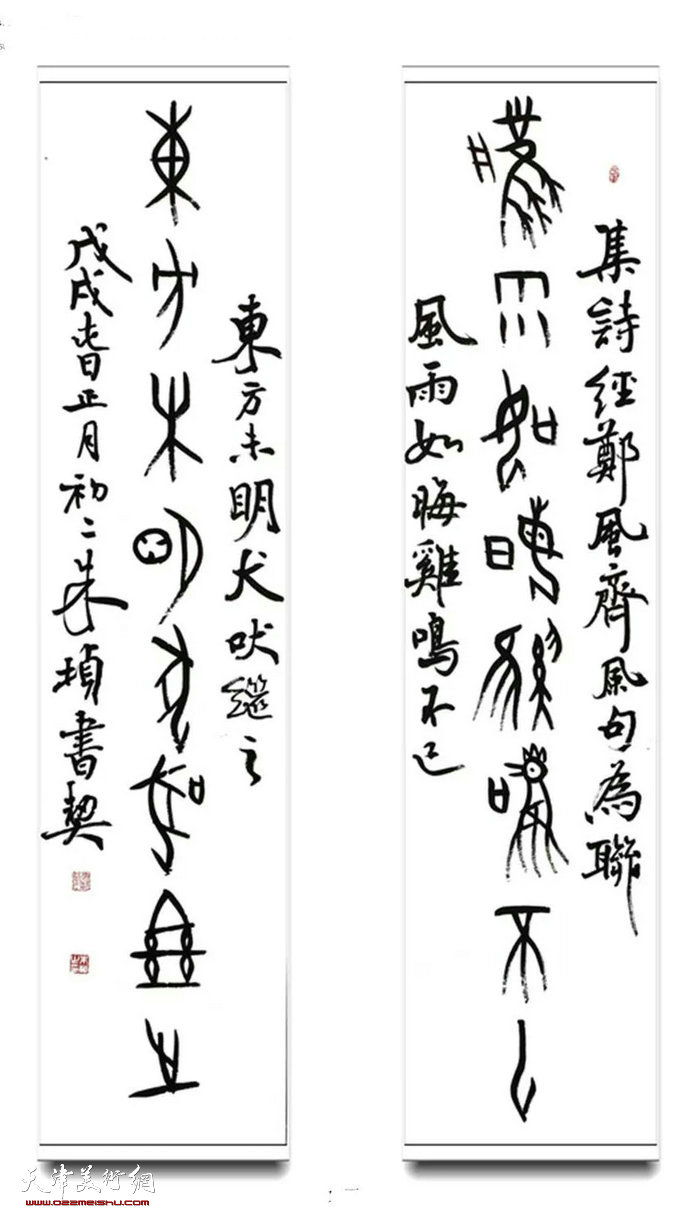 集詩經鄭風齊風句為聯
風雨如晦雞鳴不已
風雨如晦雞鳴不已
東方未明犬吠繼之
東方未明犬吠繼之
戊戌春正月初二朱楨書契
天津美術網
www.022meishu.com